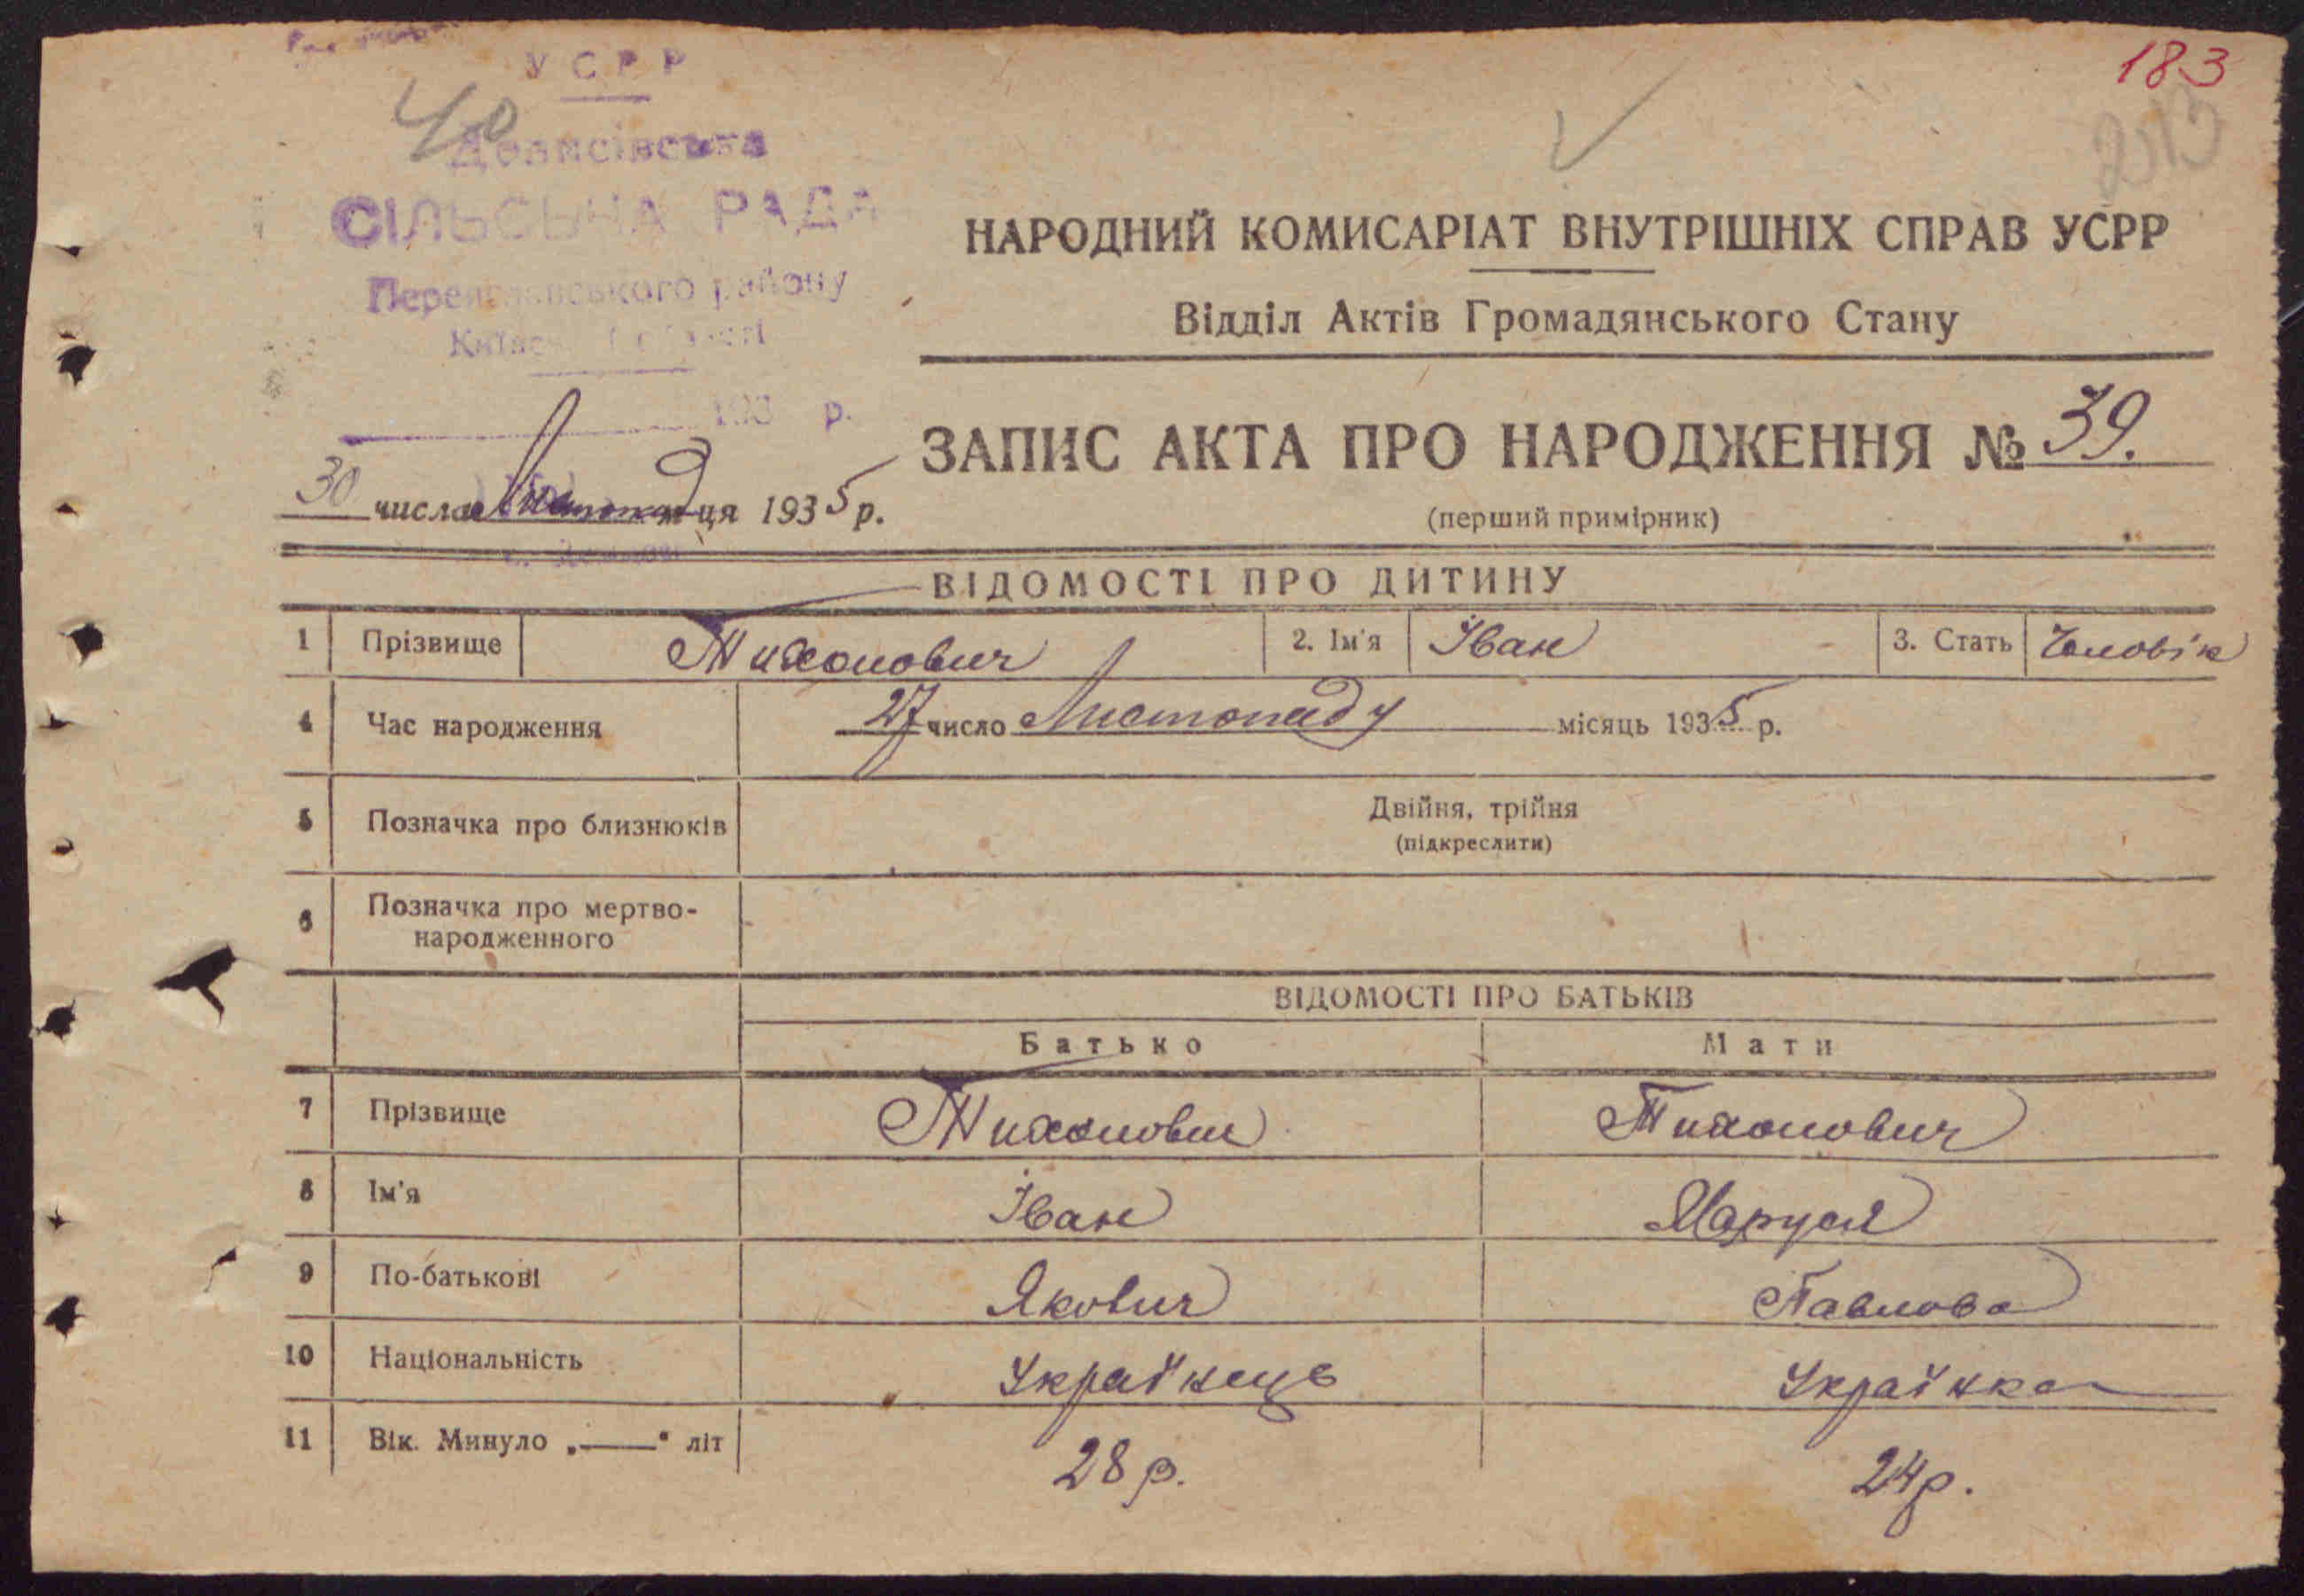 183
УСРР
40
2513
Денисівська
СІЛЬСЬКА РАДА
Переяславського району
Київської області
193 р.
НАРОДНИЙ КОМИСАРІАТ ВНУТРІШНІХ СПРАВ УСРР
Відділ Актів Громадянського Стану
ЗАПИС АКТА ПРО НАРОДЖЕННЯ № 39.
(перший примірник)
30 числа Листопад ця 1935 р.
ВІДОМОСТІ ПРО ДИТИНУ
1 Прізвище Тихонович 2. Ім'я Іван 3. Стать Чоловік
4 Час народження 27 число Листопаду місяць 1935 р.
5 Позначка про близнюків Двійня, трійня
(підкреслити)
6 Позначка про мертво-
народженного
ВІДОМОСТІ ПРО БАТЬКІВ
Батько Мати
7 Прізвище Тихонович Тихонович
8 Ім'я Іван Маруся
9 По-батькові Якович Павлова
10 Національність Українець Українка
11 Вік. Минуло „——“ літ 28 р. 24 р.